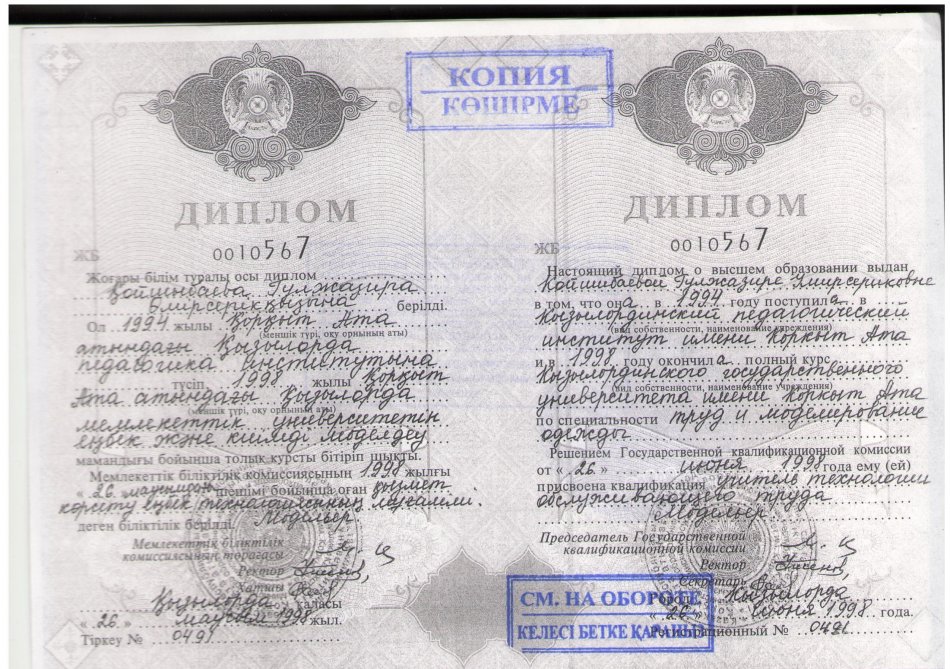 КОПИЯ
КӨШІРМЕ
ДИПЛОМ
ЖБ 0010567
Жоғары білім туралы осы диплом
Қойшыбаева Гулжазира
Әмірсерікқызына берілді.
Ол 1994 жылы Қорқыт Ата
(меншік түрі, оқу орнының аты)
атындағы Қызылорда
педагогика институтына
түсіп 1998 жылы Қорқыт
Ата атындағы Қызылорда
(меншік түрі, оқу орнының аты)
мемлекеттік университетін
еңбек және киімді моделдеу
мамандығы бойынша толық курсты бітіріп шықты.
Мемлекеттік біліктілік комиссиясының 1998 жылғы
« 26 » маусым шешімі бойынша оған қызмет
көрсету еңбек технологиясының мұғалімі.
Модельер
деген біліктілік берілді.
Мемлекеттік біліктілік
комиссиясының төрағасы
Ректор
Хатшы
Қызылорда қаласы
« 26 » маусым 1998 жыл.
Тіркеу № 0491
ДИПЛОМ
ЖБ 0010567
Настоящий диплом о высшем образовании выдан
Койшибаевой Гулжазире Амирсериковне
в том, что она в 1994 году поступила в
Кызылординский педагогический
(вид собственности, наименование учреждения)
институт имени Коркыт Ата
и в 1998 году окончила полный курс
Кызылординского государственного
(вид собственности, наименование учреждения)
университета имени Коркыт Ата
по специальности труд и моделирование
одежды
Решением Государственной квалификационной комиссии
от « 26 » июня 1998 года ему (ей)
присвоена квалификация учитель технологии
обслуживающего труда
Модельер
Председатель Государственной
квалификационной комиссии
Ректор
Секретарь
Город Кызылорда
« 26 » июня 1998 года.
Регистрационный № 0491
СМ. НА ОБОРОТЕ
КЕЛЕСІ БЕТКЕ ҚАРАҢЫЗ